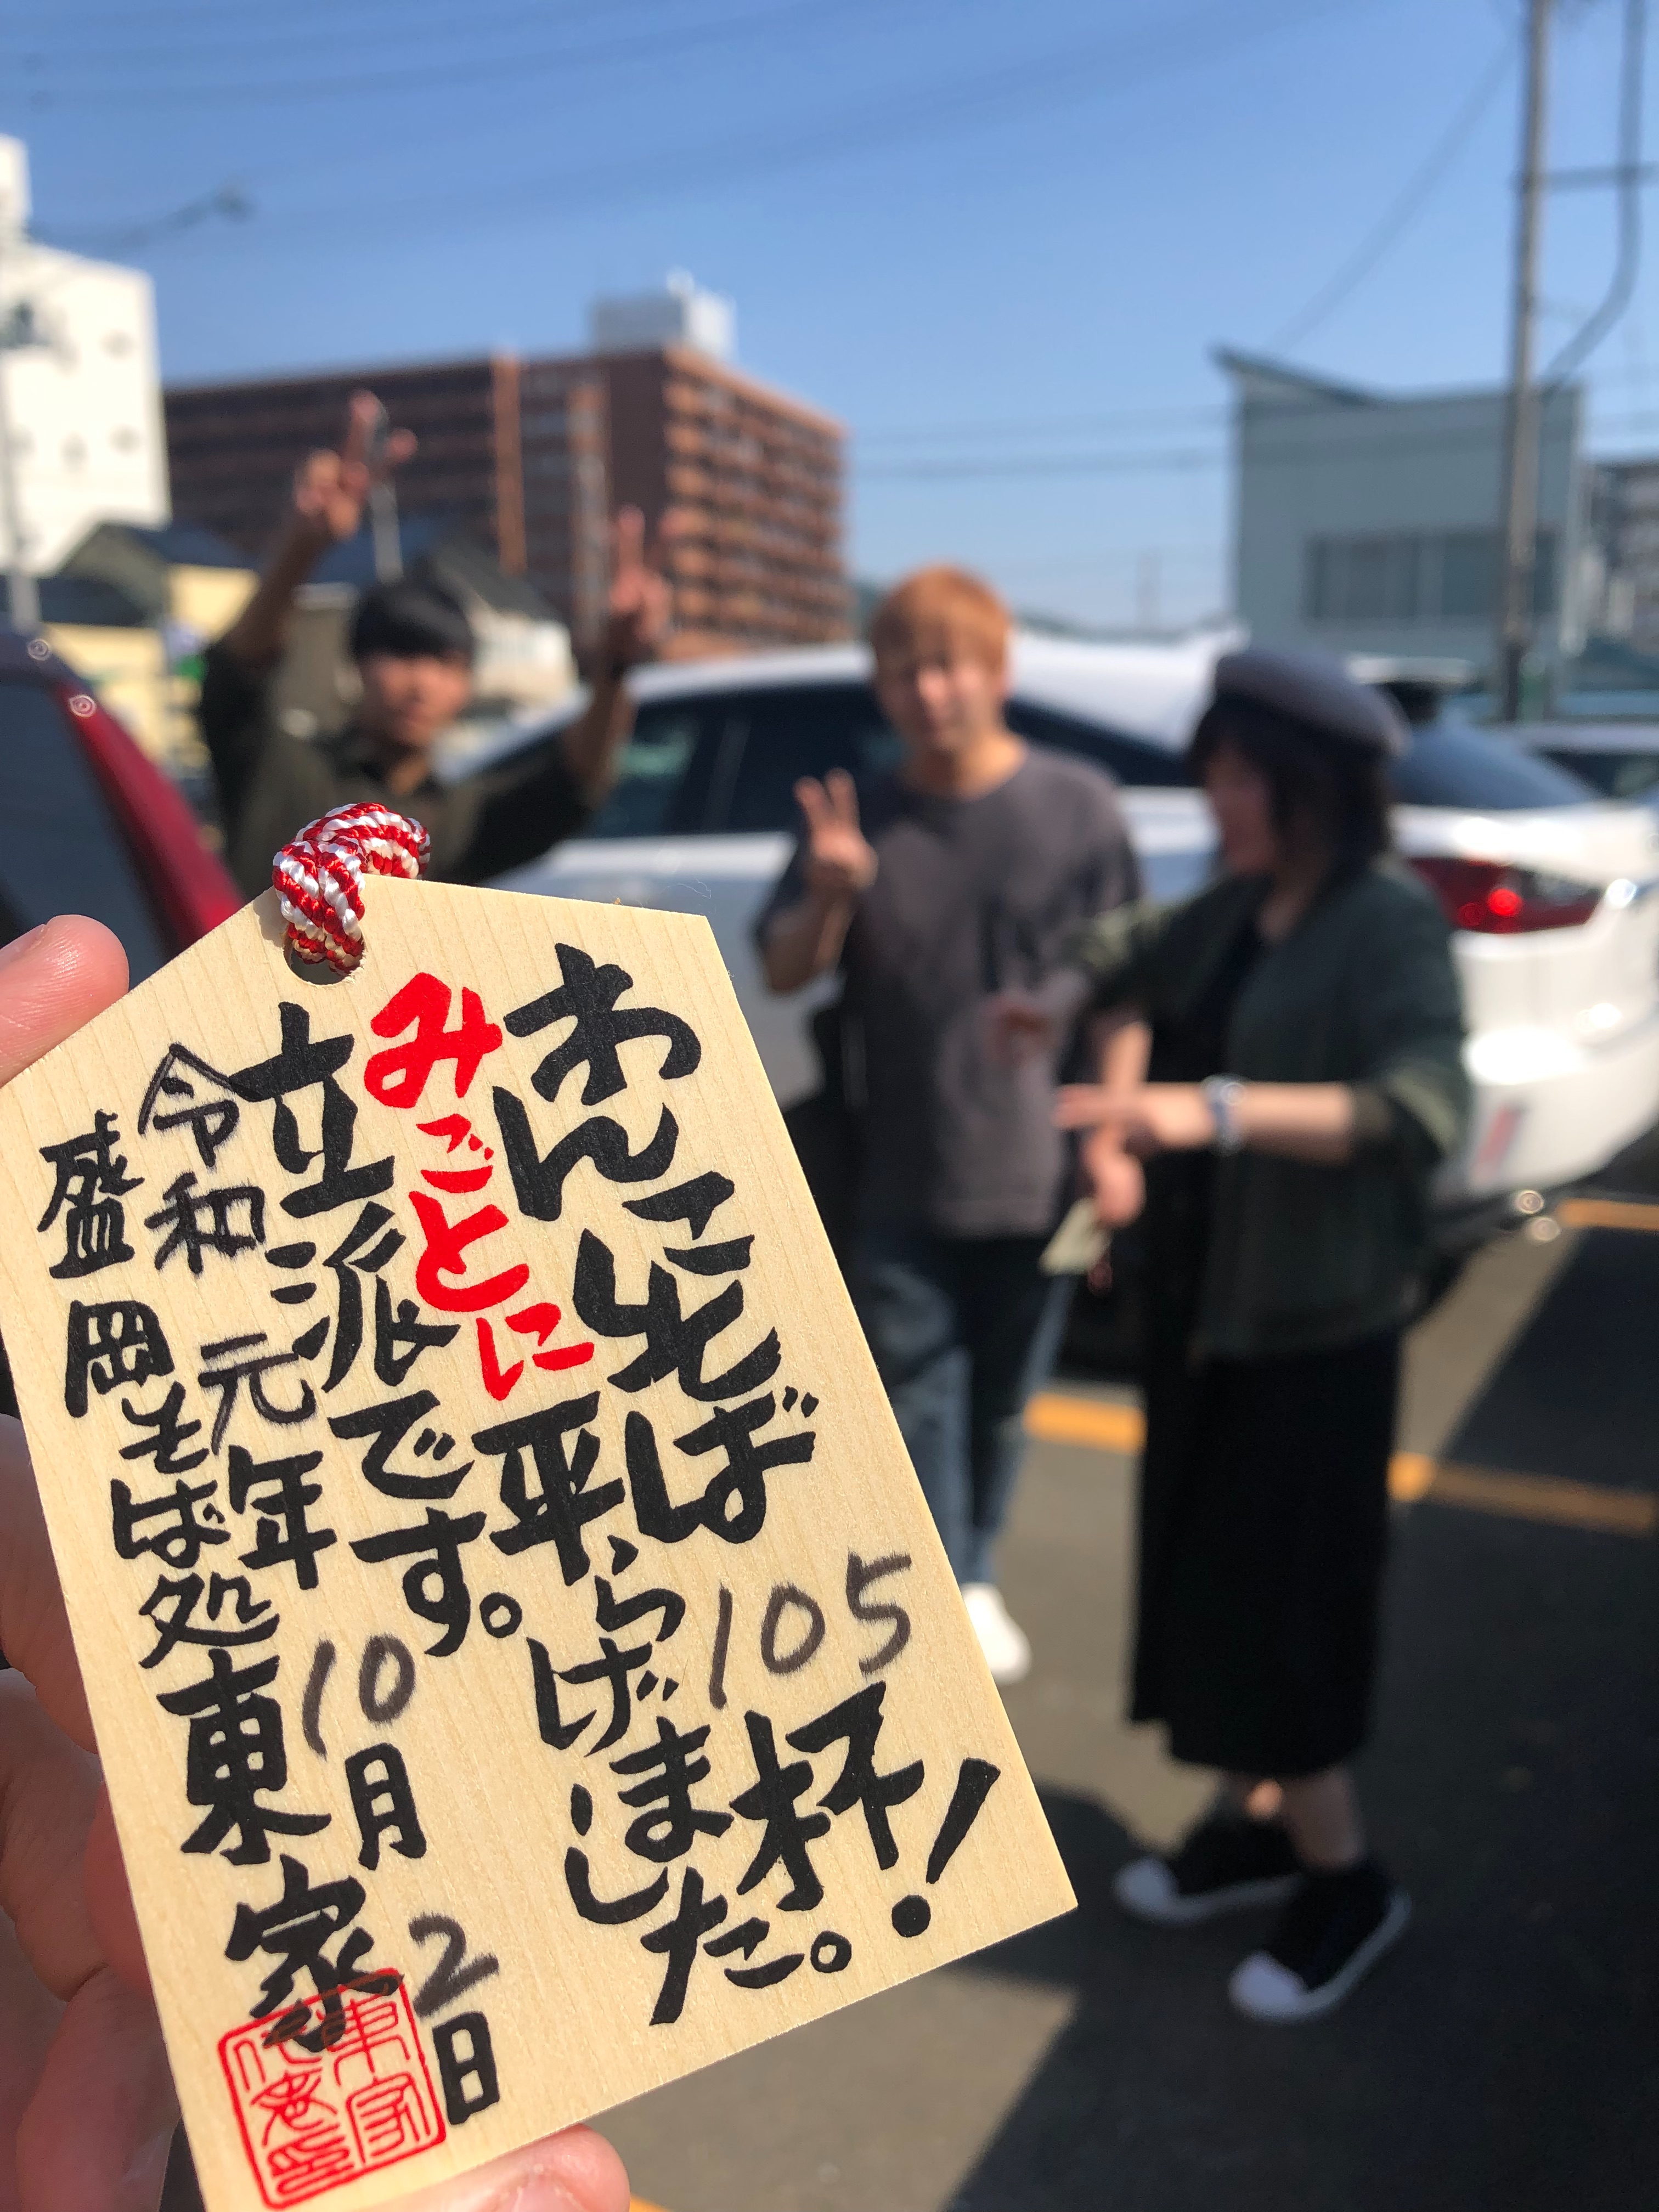 わんこそば105杯!
みごとに平らげました。
立派です。
令和元年10月2日
盛岡そば処東家